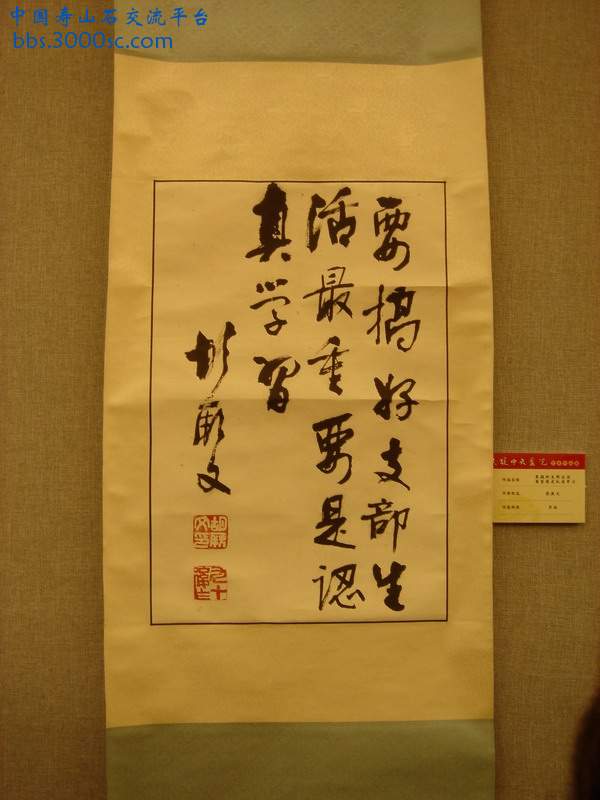 中国寿山石交流平台
bbs.3000sc.com
要搞好支部生
活最重要是認
真学習
胡厥文
胡厥文印